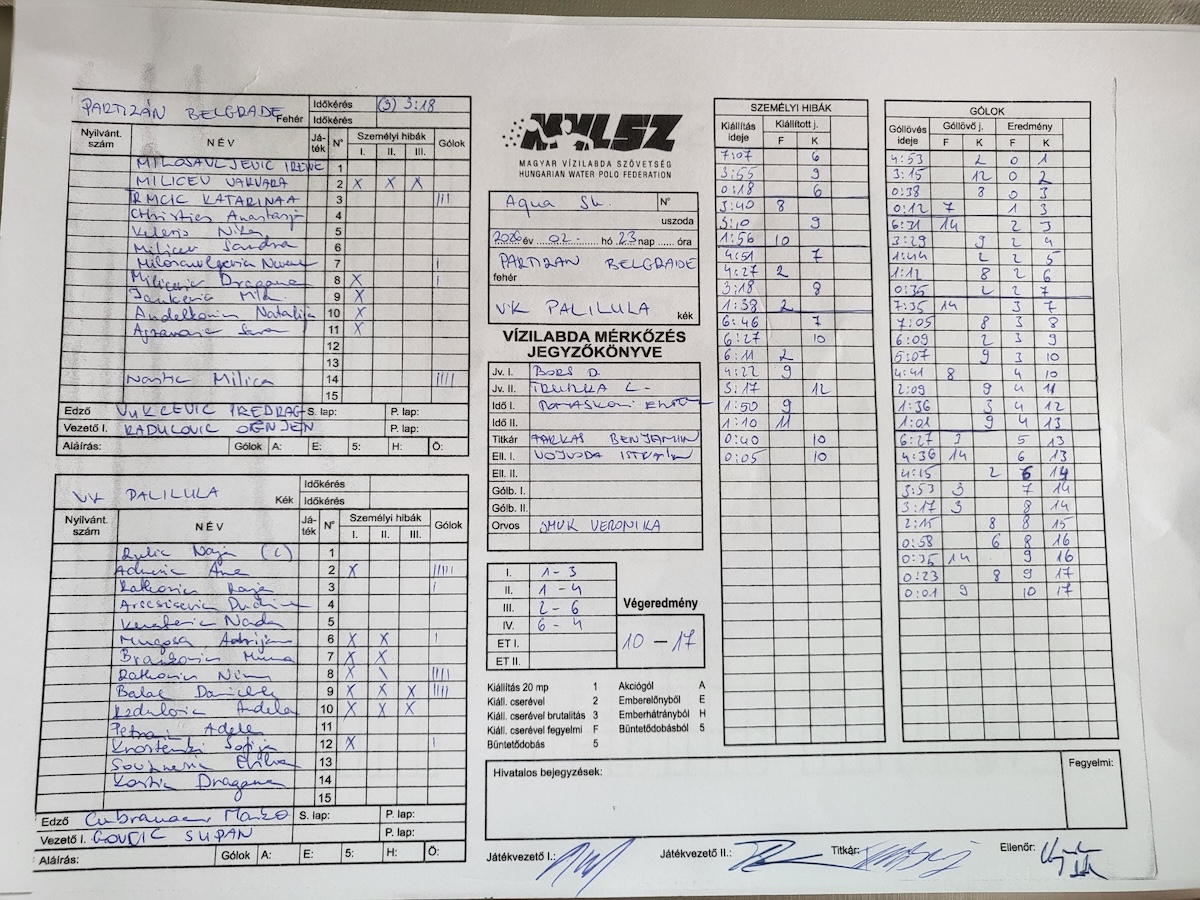 PARTIZÁN BELGRADE Fehér Időkérés (3) 3:18
Időkérés
Nyilvánt. szám NÉV Játék N° Személyi hibák I. II. III. Gólok
MILOSAVLJEVIC IRENE 1
MILICEV VARVARA 2 X X X
RMCIC KATARINAA 3 III
Christies Anastasja 4
Nika 5
Milicev Sandra 6
7 I
Dragana 8 X I
9 X
Andelkovic Natalija 10 X
Sara 11 X
12
13
Nastic Milica 14 IIII
15
Edző VUKCEVIC PREDRAG S. lap: P. lap:
Vezető I. RADULOVIC OGNJEN P. lap:
Aláírás: Gólok A: E: 5: H: Ö:
VK PALILULA Kék Időkérés
Időkérés
Nyilvánt. szám NÉV Játék N° Személyi hibák I. II. III. Gólok
Naja (c) 1
Ana 2 X IIIII
Ratkovic 3 I
4
Nada 5
Mugosa Adrijana 6 X X I
7 X X
Ratkovic Nina 8 X \ IIII
Balac 9 X X X IIII
Andela 10 X X X
Adela 11
Sofija 12 X I
13
Kostic Dragana 14
15
Edző S. lap: P. lap:
Vezető I. P. lap:
Aláírás: Gólok A: E: 5: H: Ö:
MVLSZ
MAGYAR VÍZILABDA SZÖVETSÉG
HUNGARIAN WATER POLO FEDERATION
Aqua Sk. N°
uszoda
2026 év 02. hó 23 nap ...... óra
PARTIZAN BELGRADE
fehér
VK PALILULA
kék
VÍZILABDA MÉRKŐZÉS
JEGYZŐKÖNYVE
Jv. I. BORS D.
Jv. II.
Idő I.
Idő II.
Titkár FARKAS BENJAMIN
Ell. I. VOJVODA ISTVÁN
Ell. II.
Gólb. I.
Gólb. II.
Orvos SMUK VERONIKA
I. 1-3
II. 1-4
III. 2-6
IV. 6-4
ET I.
ET II.
Végeredmény
10-17
Kiállítás 20 mp 1 Akciógól A
Kiáll. cserével 2 Emberelőnyből E
Kiáll. cserével brutalitás 3 Emberhátrányból H
Kiáll. cserével fegyelmi F Büntetődobásból 5
Büntetődobás 5
SZEMÉLYI HIBÁK
Kiállítás ideje Kiállított j. F K
7:07 6
3:55 9
0:18 6
3:40 8
3:10 9
1:56 10
4:51 7
4:27 2
3:18 8
1:38 2
6:46 7
6:27 10
6:11 2
4:22 9
3:17 12
1:50 9
1:10 11
0:40 10
0:05 10
GÓLOK
Góllövés ideje Góllövő j. F K Eredmény F K
4:53 2 0 1
3:15 12 0 2
0:38 8 0 3
0:12 7 1 3
6:31 14 2 3
3:29 9 2 4
1:44 2 2 5
1:12 8 2 6
0:35 2 2 7
7:35 14 3 7
7:05 8 3 8
6:09 2 3 9
5:07 9 3 10
4:41 8 4 10
2:09 9 4 11
1:36 3 4 12
1:01 9 4 13
6:27 3 5 13
4:36 14 6 13
4:15 2 6 14
3:53 3 7 14
3:17 3 8 14
2:15 8 8 15
0:58 6 8 16
0:35 14 9 16
0:23 8 9 17
0:01 9 10 17
Hivatalos bejegyzések: Fegyelmi:
Játékvezető I.: Játékvezető II.: Titkár: Ellenőr: